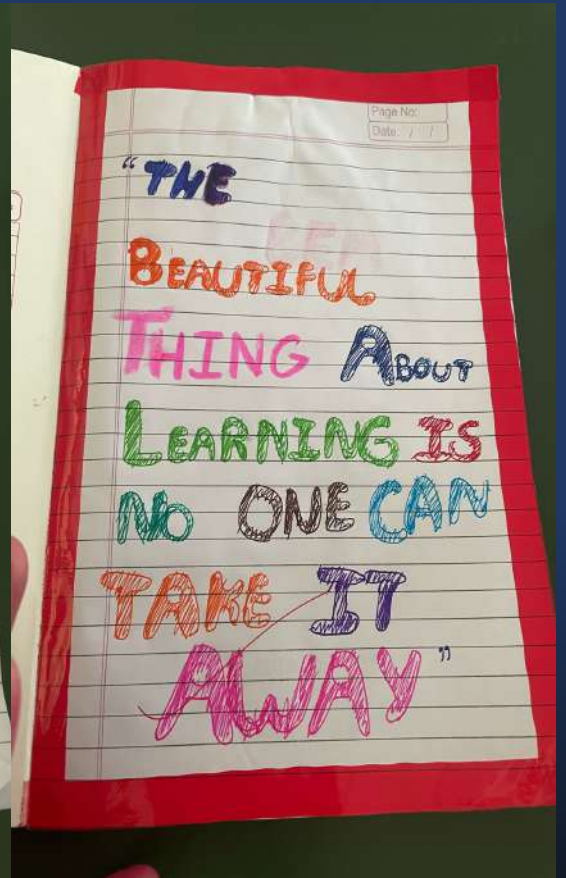 Page No:
Date: / /
“THE
BEAUTIFUL
THING ABOUT
LEARNING IS
NO ONE CAN
TAKE IT
AWAY”